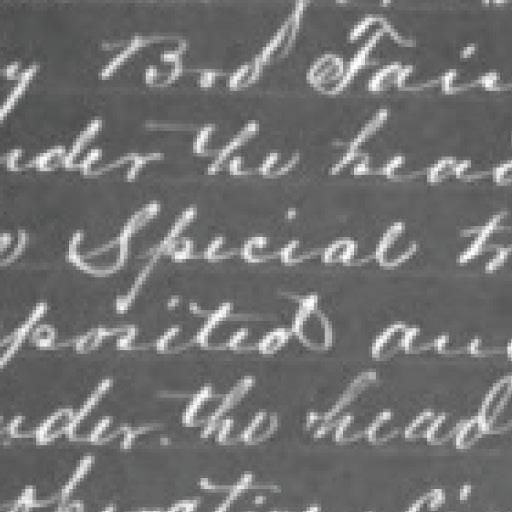 y Brd Fair
nder the head
Special tr
posited an
nder the head